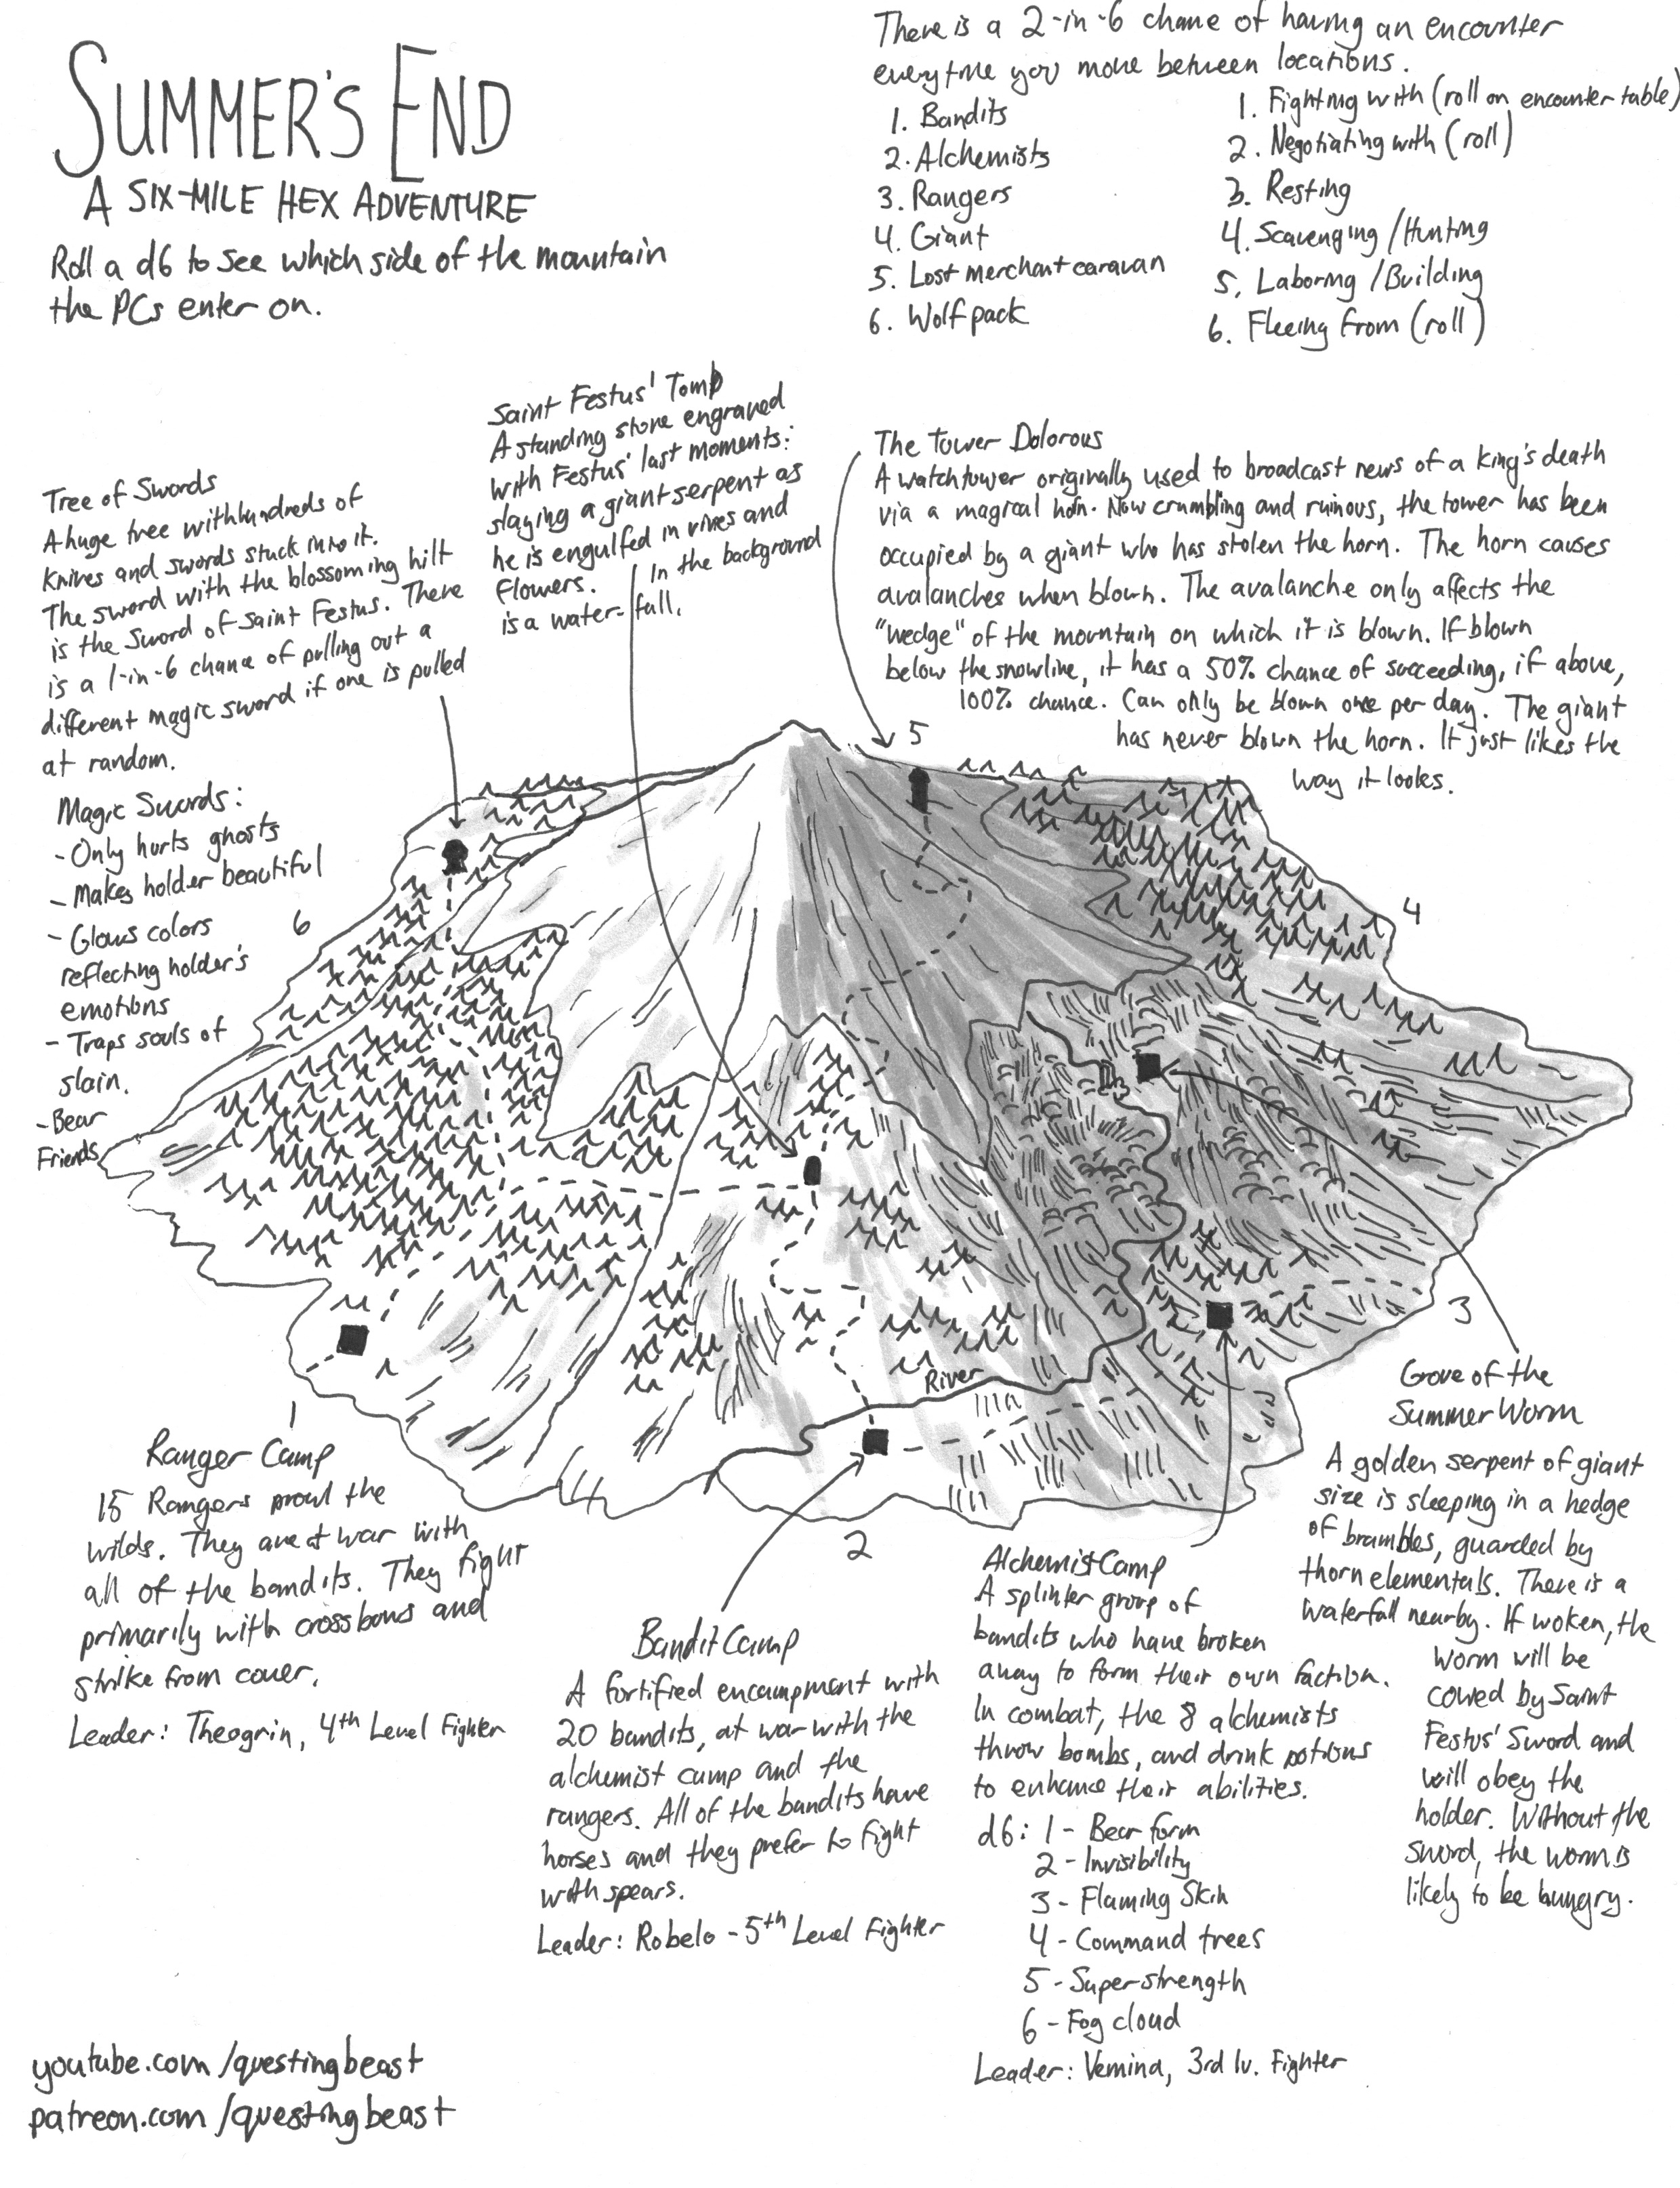 SUMMER'S END
A SIX-MILE HEX ADVENTURE
Roll a d6 to see which side of the mountain
the PCs enter on.
There is a 2-in-6 chance of having an encounter
everytime you move between locations.
1. Bandits
2. Alchemists
3. Rangers
4. Giant
5. Lost merchant caravan
6. Wolf pack
1. Fighting with (roll on encounter table)
2. Negotiating with (roll)
3. Resting
4. Scavenging / Hunting
5. Laboring / Building
6. Fleeing from (roll)
Tree of Swords
A huge tree with hundreds of
knives and swords stuck into it.
The sword with the blossoming hilt
is the Sword of Saint Festus. There
is a 1-in-6 chance of pulling out a
different magic sword if one is pulled
at random.
Magic Swords:
- Only hurts ghosts
- Makes holder beautiful
- Glows colors
reflecting holder's
emotions
- Traps souls of
slain.
- Bear
Friends
Saint Festus' Tomb
A standing stone engraved
with Festus' last moments:
slaying a giant serpent as
he is engulfed in vines and
flowers. In the background
is a water-fall.
The Tower Dolorous
A watchtower originally used to broadcast news of a king's death
via a magical horn. Now crumbling and ruinous, the tower has been
occupied by a giant who has stolen the horn. The horn causes
avalanches when blown. The avalanche only affects the
"wedge" of the mountain on which it is blown. If blown
below the snowline, it has a 50% chance of succeeding, if above,
100% chance. Can only be blown once per day. The giant
has never blown the horn. It just likes the
way it looks.
5
4
6
3
River
1
2
Ranger Camp
15 Rangers prowl the
wilds. They are at war with
all of the bandits. They fight
primarily with crossbows and
strike from cover.
Leader: Theogrin, 4th Level Fighter
Bandit Camp
A fortified encampment with
20 bandits, at war with the
alchemist camp and the
rangers. All of the bandits have
horses and they prefer to fight
with spears.
Leader: Robelo - 5th Level Fighter
Alchemist Camp
A splinter group of
bandits who have broken
away to form their own faction.
In combat, the 8 alchemists
throw bombs, and drink potions
to enhance their abilities.
d6: 1 - Bear form
2 - Invisibility
3 - Flaming Skin
4 - Command trees
5 - Super strength
6 - Fog cloud
Leader: Vemina, 3rd lv. Fighter
Grove of the
Summer Worm
A golden serpent of giant
size is sleeping in a hedge
of brambles, guarded by
thorn elementals. There is a
waterfall nearby. If woken, the
worm will be
cowed by Saint
Festus' Sword and
will obey the
holder. Without the
sword, the worm is
likely to be hungry.
youtube.com/questingbeast
patreon.com/questingbeast